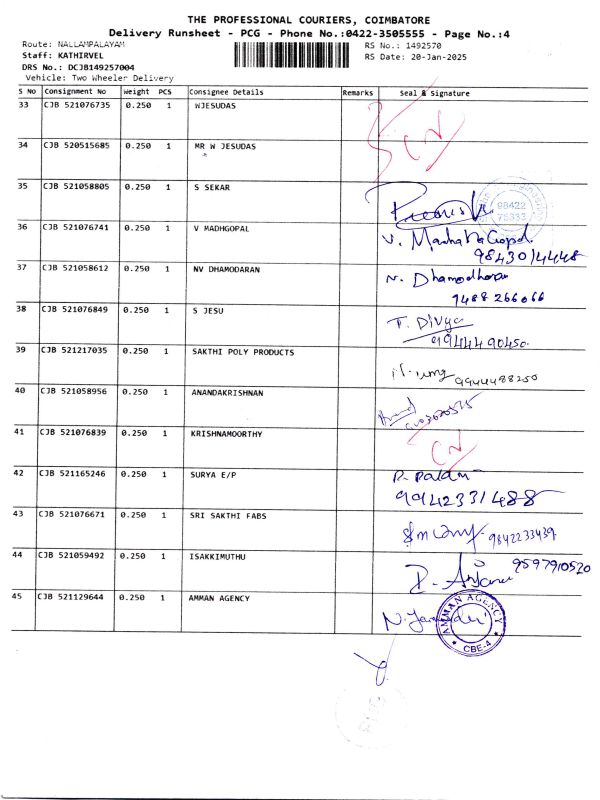 THE PROFESSIONAL COURIERS, COIMBATORE
Delivery Runsheet - PCG - Phone No.:0422-3505555 - Page No.:4
Route: NALLAMPALAYAM RS No.: 1492570
Staff: KATHIRVEL RS Date: 20-Jan-2025
DRS No.: DCJB149257004
Vehicle: Two Wheeler Delivery
S No Consignment No Weight PCS Consignee Details Remarks Seal & Signature
33 CJB 521076735 0.250 1 WJESUDAS
34 CJB 520515685 0.250 1 MR W JESUDAS
CN
35 CJB 521058805 0.250 1 S SEKAR
98422
75333
36 CJB 521076741 0.250 1 V MADHGOPAL V. Madhana Gopal
9843014448
37 CJB 521058612 0.250 1 NV DHAMODARAN N. Dhamodharan
9488266066
38 CJB 521076849 0.250 1 S JESU T. Divya
9944490450
39 CJB 521217035 0.250 1 SAKTHI POLY PRODUCTS
9944488250
40 CJB 521058956 0.250 1 ANANDAKRISHNAN Anand
41 CJB 521076839 0.250 1 KRISHNAMOORTHY CN
42 CJB 521165246 0.250 1 SURYA E/P
9942331488
43 CJB 521076671 0.250 1 SRI SAKTHI FABS 9842233439
44 CJB 521059492 0.250 1 ISAKKIMUTHU 9597910520
45 CJB 521129644 0.250 1 AMMAN AGENCY
AMMAN AGENCY
CBE-4